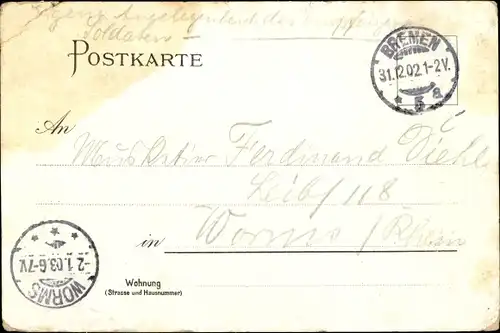 Eigene Angelegenheit des Empfängers
Soldaten
POSTKARTE
BREMEN
31.12.02.1-2V.
* 5 a
An
Musketier Ferdinand Diehl
Leib/118
in Worms/Rhein
WORMS
-2.1.03.6-7V.
Wohnung
(Strasse und Hausnummer)